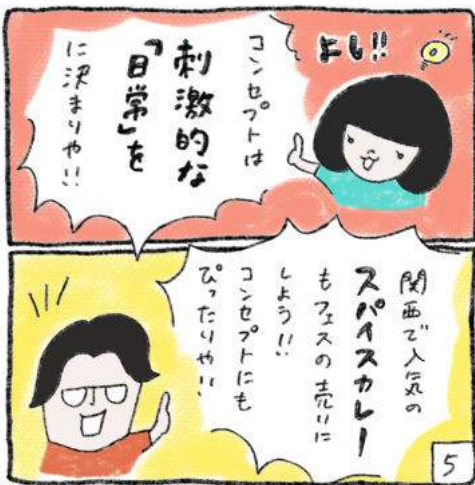 よし!!
コンセプトは
刺激的な
「日常」を
に決まりや!!
関西で人気の
スパイスカレー
もフェスの売りに
しよう!!
コンセプトにも
ぴったりや!!
5